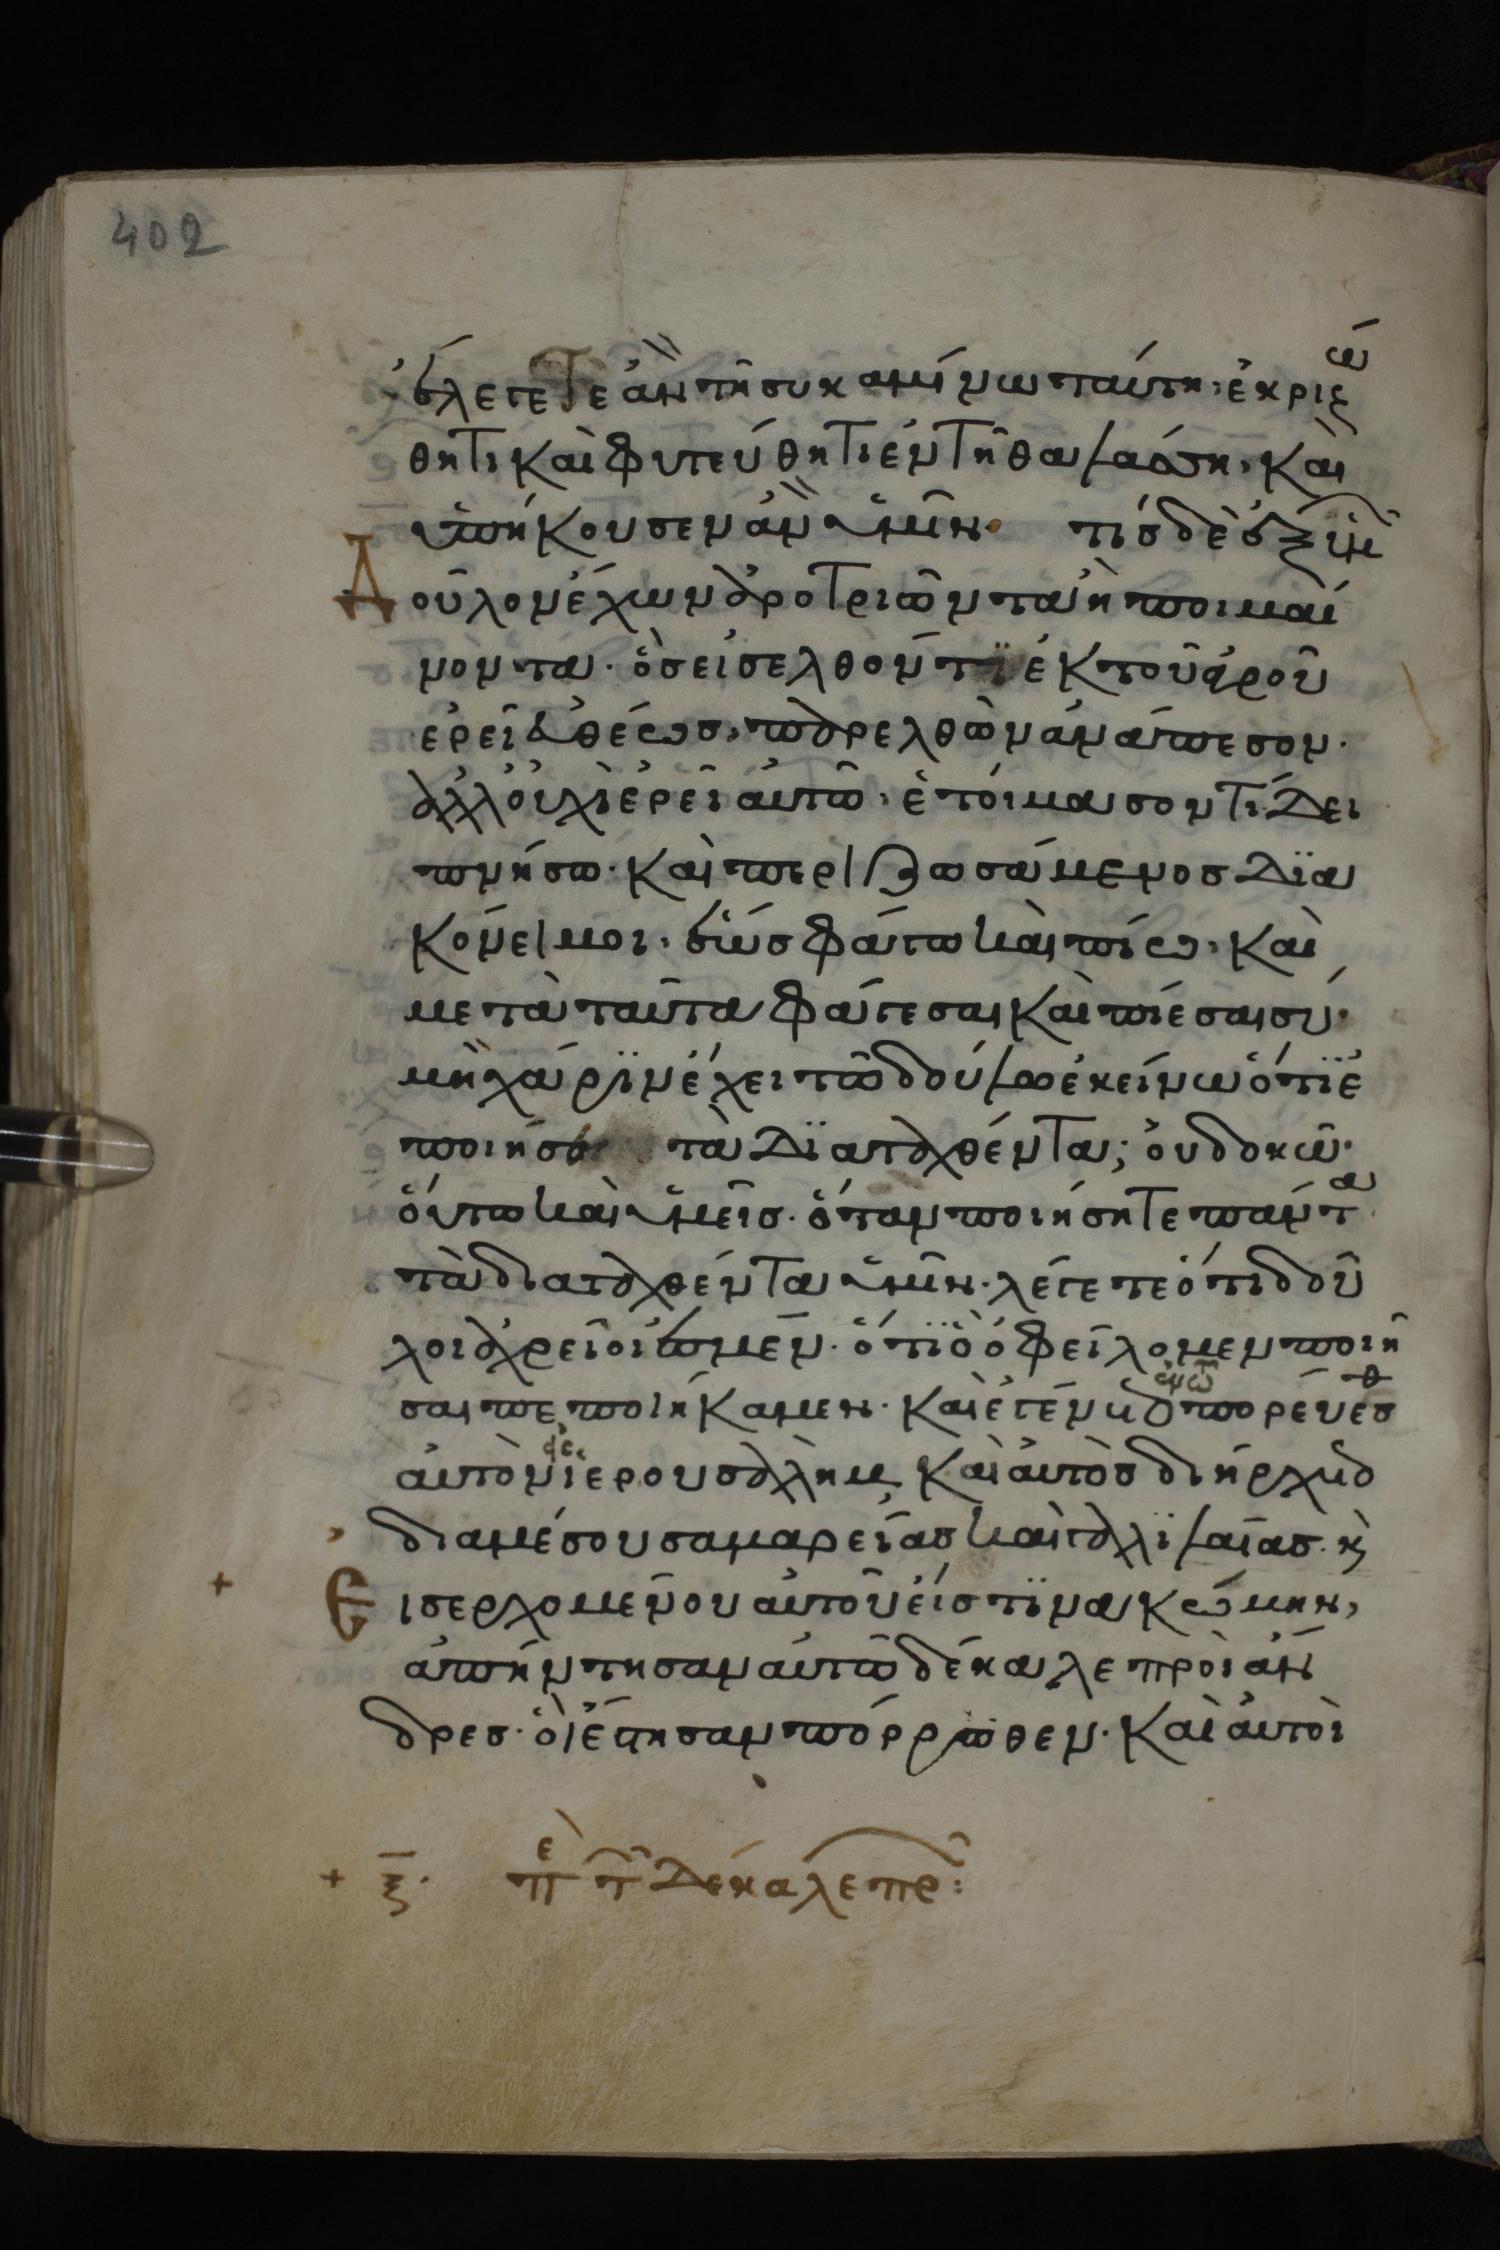 402
ἐλέγετε ἂν τῆ συκαμίνω ταύτη· ἐκριζώ
θητι καὶ φυτεύθητι ἐν τῆ θαλάσση· καὶ
ὑπήκουσεν ἂν ὑμῖν· τίς δὲ ἐξ ὑμ
Δοῦλον ἔχων ἀροτριῶντα ἢ ποιμαί
νοντα· ὃς εἰσελθόντι ἐκ τοῦ ἀγροῦ
ἐρεῖ εὐθέως, παρελθὼν ἀνάπεσον·
ἀλλ' οὐχὶ ἐρεῖ αὐτῶ· ἑτοίμασον τί δει
πνήσω· καὶ περιζωσάμενος διᾳ
κόνει μοι· ἕως φάγω καὶ πίω· καὶ
μετὰ ταῦτα φάγεσαι καὶ πίεσαι σύ·
μὴ χάριν ἔχει τῶ δούλω ἐκείνω ὅτι ἐ
ποίησε τὰ διαταχθέντα; οὐ δοκῶ·
οὕτω καὶ ὑμεῖς· ὅταν ποιήσητε πάντα
τὰ διαταχθέντα ὑμῖν· λέγετε ὅτι δοῦ
λοι ἀχρεῖοί ἐσμεν· ὅτι ὃ ὀφείλομεν ποιῆ
σαι πεποιήκαμεν· καὶ ἐγένετο ἐν τῶ πορεύεσθ
αὐτὸν εἰς ἱερουσαλὴμ καὶ αὐτὸς διήρχετο
διαμέσου σαμαρείας καὶ γαλιλαίας· κ
Εἰσερχομένου αὐτοῦ εἴς τινα κώμην,
ἀπήντησαν αὐτῶ δέκα λεπροὶ ἄν
δρες· οἳ ἔστησαν πόρρωθεν· καὶ αὐτοὶ
+ ξ· πε τ δέκα λεπρ: